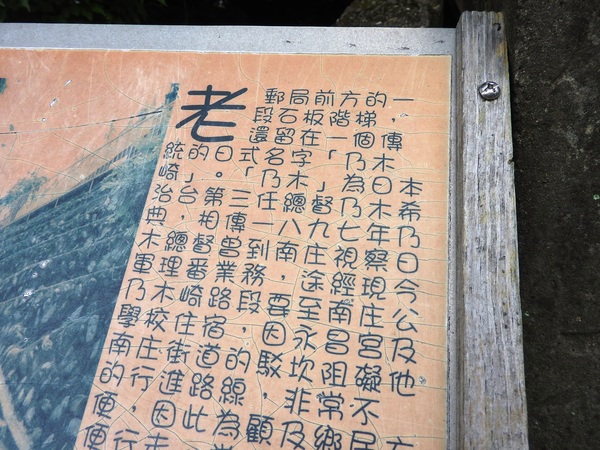 老郵局前方的一
段石板階梯，
還留在一個傳
統的日式名字「乃木
崎」。「乃木」為日本
治台第三任總督乃木希
典，相傳一八九七年乃
木總督曾到南庄視察日
軍理番業務，途經現今
乃木崎路段，要至南庄公
學校住宿，因永昌宮及
南庄街道的駁坎阻礙他
的行進路線，非常不
便，因此為顧及鄉居
便行走